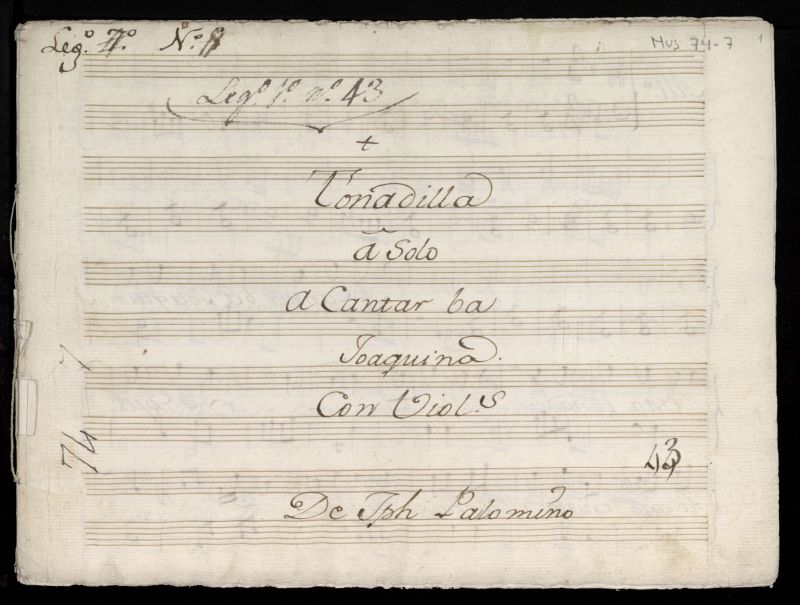 Leg.º 7.º N.º Mus 74-7 1
Leg.º 1.º n.º 43
+
Tonadilla
â Solo
a Cantar ba
Joaquina.
Con Viol.s
74 7
43
De Jph Palomino